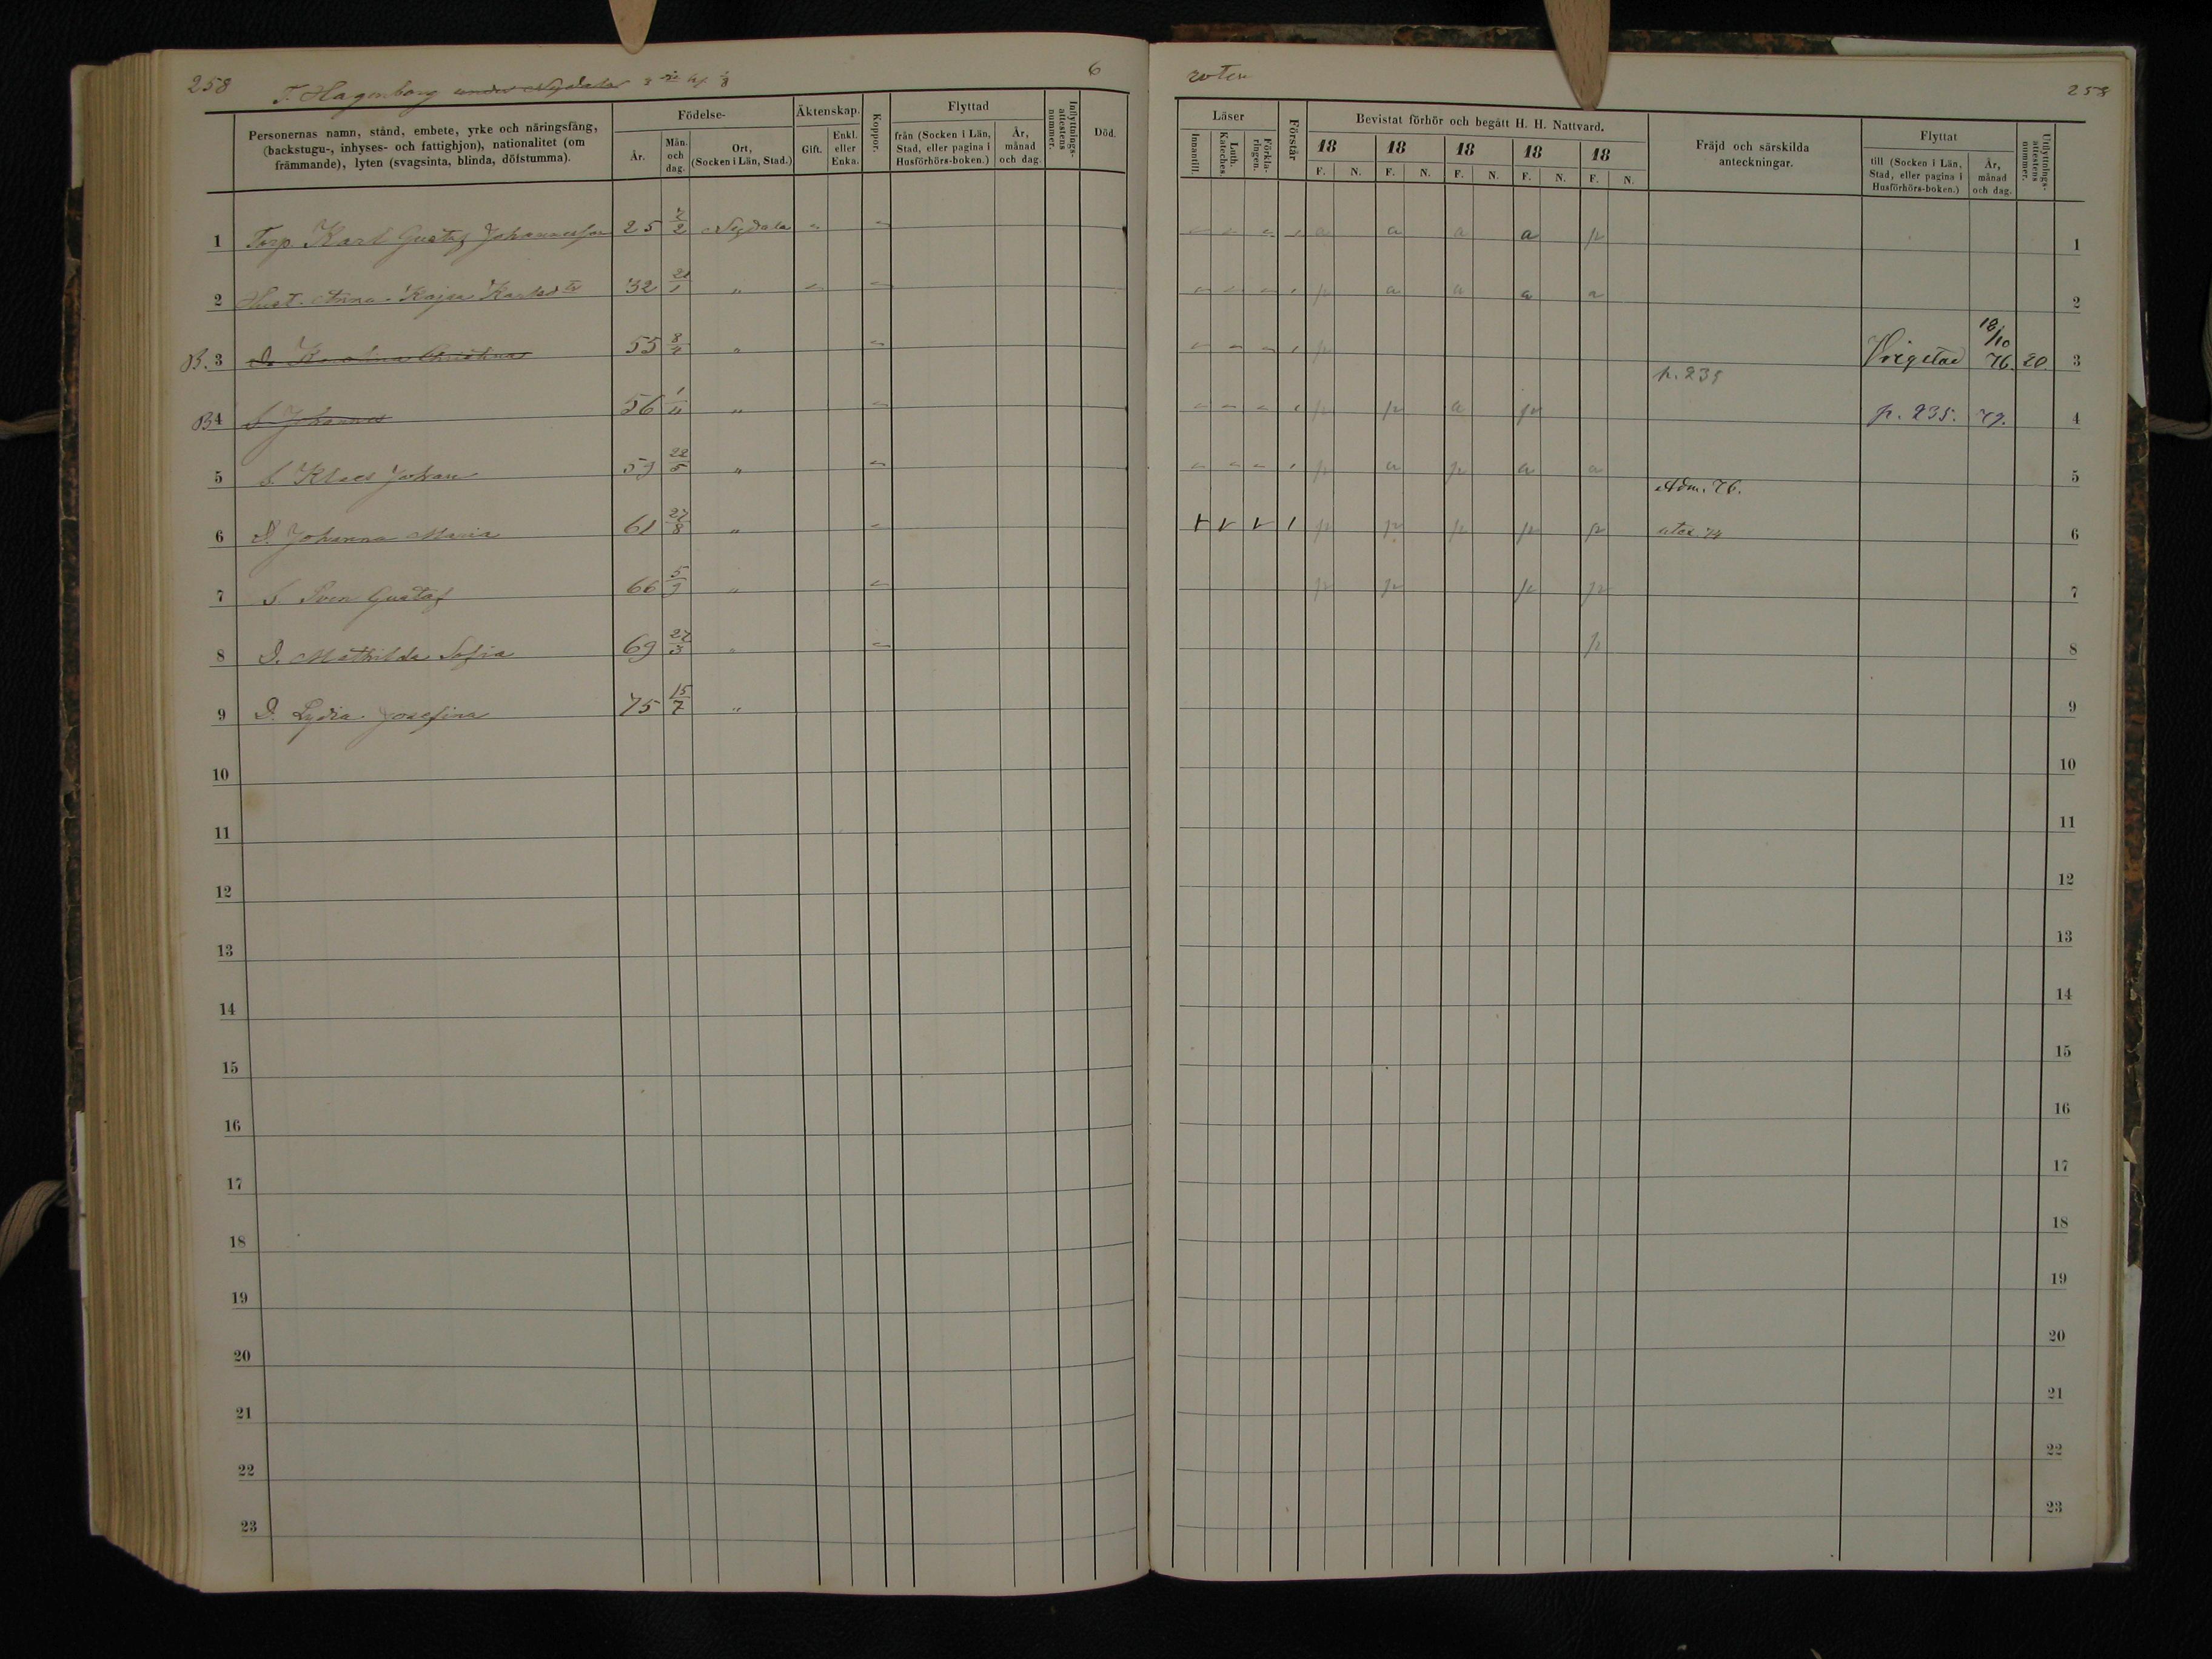 258 T. Hagenborg under Nydala 6 roten 258
Personernas namn, stånd, embete, yrke och näringsfång, (backstugu-, inhyses- och fattighjon), nationalitet (om främmande), lyten (svagsinta, blinda, döfstumma).
Födelse-
År.
Mån. och dag.
Ort, (Socken i Län, Stad.)
Äktenskap.
Gift.
Enkl. eller Enka.
Koppor.
Flyttad
från (Socken i Län, Stad, eller pagina i Husförhörs-boken.)
År, månad och dag.
Inflyttnings-attestens nummer.
Död.
Läser
Innantill.
Luth. Kateches.
Förkla-ringen.
Förstår
Bevistat förhör och begått H. H. Nattvard.
18 18 18 18 18
F. N. F. N. F. N. F. N. F. N.
Fräjd och särskilda anteckningar.
Flyttat
till (Socken i Län, Stad, eller pagina i Husförhörs-boken.)
År, månad och dag.
Utflyttnings-attestens nummer.
1 Torp. Karl Gustaf Johannesson 25 2/2 Nydala a a a a p 1
2 Hust. Anna Kajsa Karlsdtr 32 21/1 " p a a a a 2
B. 3 D. Karolina Christina 55 8/4 " p Vrigstad 18/10 76. 20. 3
p. 235
B 4 S. Johannes 56 1/11 " p p a p p. 235. 79. 4
5 S. Klaes Johan 59 22/5 " p a p a a 5
Adm. 76.
6 D. Johanna Maria 61 27/8 " p p p p p 6
7 S. Sven Gustaf 66 5/9 " p p p p 7
8 D. Mathilda Sofia 69 27/3 " p 8
9 D. Lydia Josefina 75 15/7 " 9
10 10
11 11
12 12
13 13
14 14
15 15
16 16
17 17
18 18
19 19
20 20
21 21
22 22
23 23